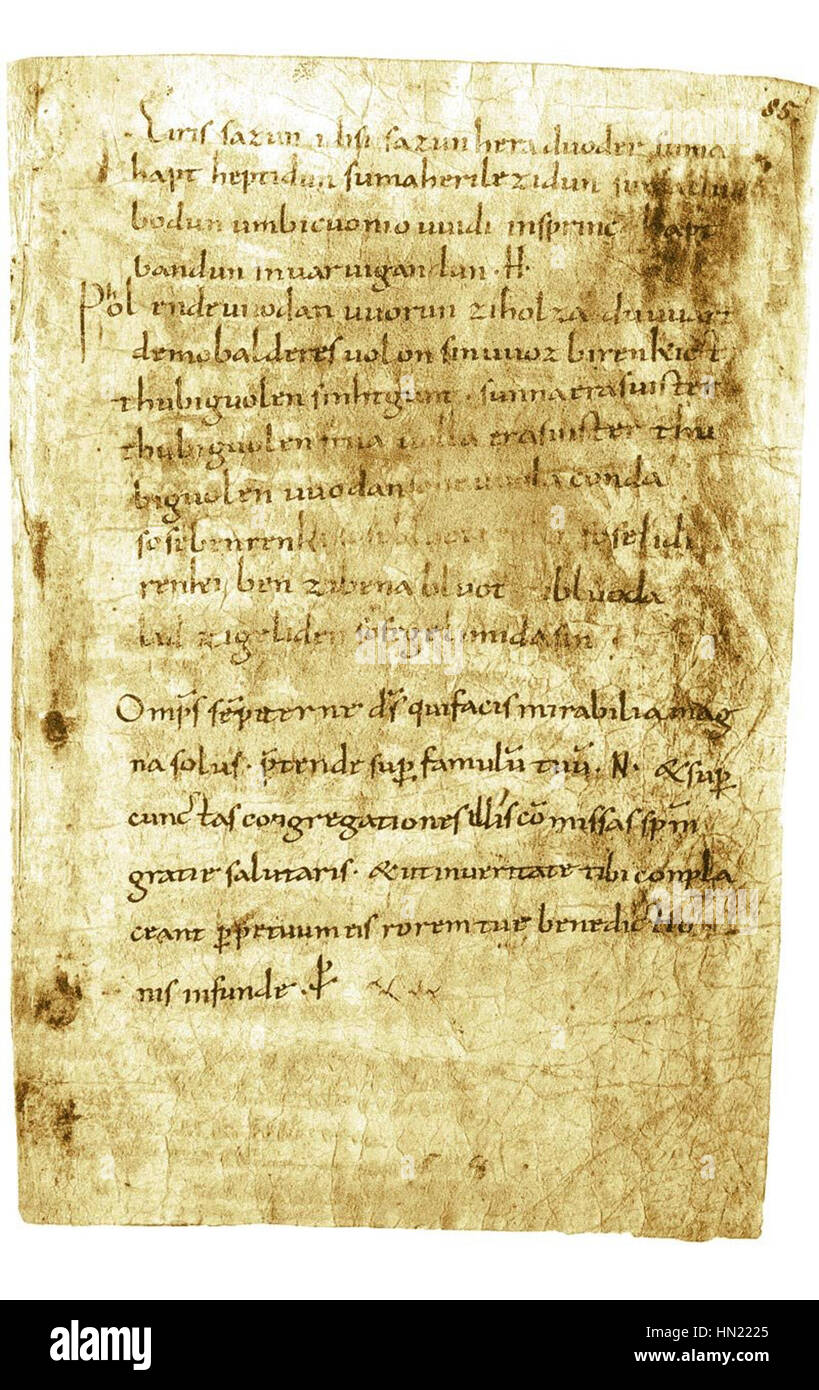 85
Eiris sazun idisi sazun hera duoder suma
hapt heptidun suma heri lezidun suma clu
bodun umbi cuonio uuidi insprinc hapt
bandun inuar uigandun · H ·
Phol ende uuodan uuorun zi holza du uuart
demo balderes uolon sin uuoz birenkict
thu biguolen sinhtgunt · sunna era suister
thu biguolen friia uolla era suister thu
biguolen uuodan so he uuola conda
sose benrenki sose bluotrenki sose lidi
renki ben zi bena bluot zi bluoda
lid zi geliden sose gelimida sin
Omp̄s sēpiterne d̄s qui facis mirabilia mag
na solus · p̄tende sup̱ famulū tuū · N · & sup̱
cunctas congregationes illis cōmissas sp̄m
gratie salutaris · & ut in ueritate tibi conpla
ceant p̱petuum eis rorem tue benedictio
nis infunde ·
alamy
alamy
alamy
a
a
a
a
a
a
a
alamy
Image ID: HN2225
www.alamy.com